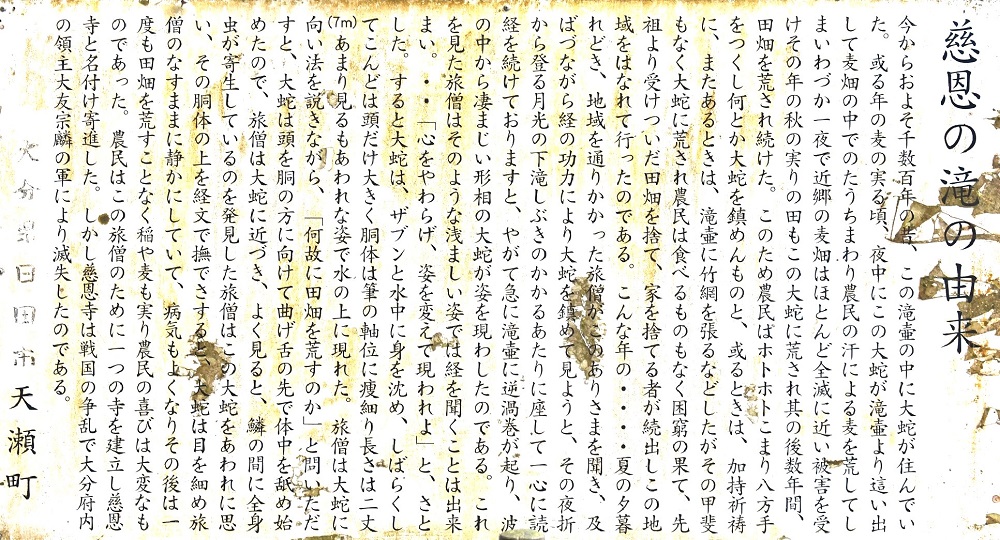 慈恩の滝の由来
今からおよそ千数百年の昔、この滝壷の中に大蛇が住んでい
た。或る年の麦の実る頃、夜中にこの大蛇が滝壷より這い出
して麦畑の中でのたうちまわり農民の汗による麦を荒してし
まいわづか一夜で近郷の麦畑はほとんど全滅に近い被害を受
けその年の秋の実りの田もこの大蛇に荒され其の後数年間、
田畑を荒され続けた。このため農民ばホトホトこまり八方手
をつくし何とか大蛇を鎮めんものと、或るときは、加持祈祷
に、またあるときは、滝壷に竹網を張るなどしたがその甲斐
もなく大蛇に荒され農民は食べるものもなく困窮の果て、先
祖より受けついだ田畑を捨て、家を捨てる者が続出しこの地
域をはなれて行ったのである。こんな年の・・・・夏の夕暮
れどき、地域を通りかかった旅僧がこのありさまを聞き、及
ばづながら経の功力により大蛇を鎮めて見ようと、その夜折
から登る月光の下滝しぶきのかかるあたりに座して一心に読
経を続けておりますと、やがて急に滝壷に逆渦巻が起り、波
の中から凄まじい形相の大蛇が姿を現わしたのである。これ
を見た旅僧はそのような浅ましい姿では経を聞くことは出来
まい。・・「心をやわらげ、姿を変えて現われよ」と、さと
した。すると大蛇は、ザブンと水中に身を沈め、しばらくし
てこんどは頭だけ大きく胴体は筆の軸位に痩細り長さは二丈
(7m)あまり見るもあわれな姿で水の上に現れた。旅僧は大蛇に
向い法を説きながら、「何故に田畑を荒すのか」と問いただ
すと、大蛇は頭を胴の方に向けて曲げ舌の先で体中を舐め始
めたので、旅僧は大蛇に近づき、よく見ると、鱗の間に全身
虫が寄生しているのを発見した旅僧はこの大蛇をあわれに思
い、その胴体の上を経文で撫でさすると、大蛇は目を細め旅
僧のなすままに静かにしていて、病気もよくなりその後は一
度も田畑を荒すことなく稲や麦も実り農民の喜びは大変なも
のであった。農民はこの旅僧のために一つの寺を建立し慈恩
寺と名付け寄進した。しかし慈恩寺は戦国の争乱で大分府内
の領主大友宗麟の軍により滅失したのである。
大分県日田市天瀬町